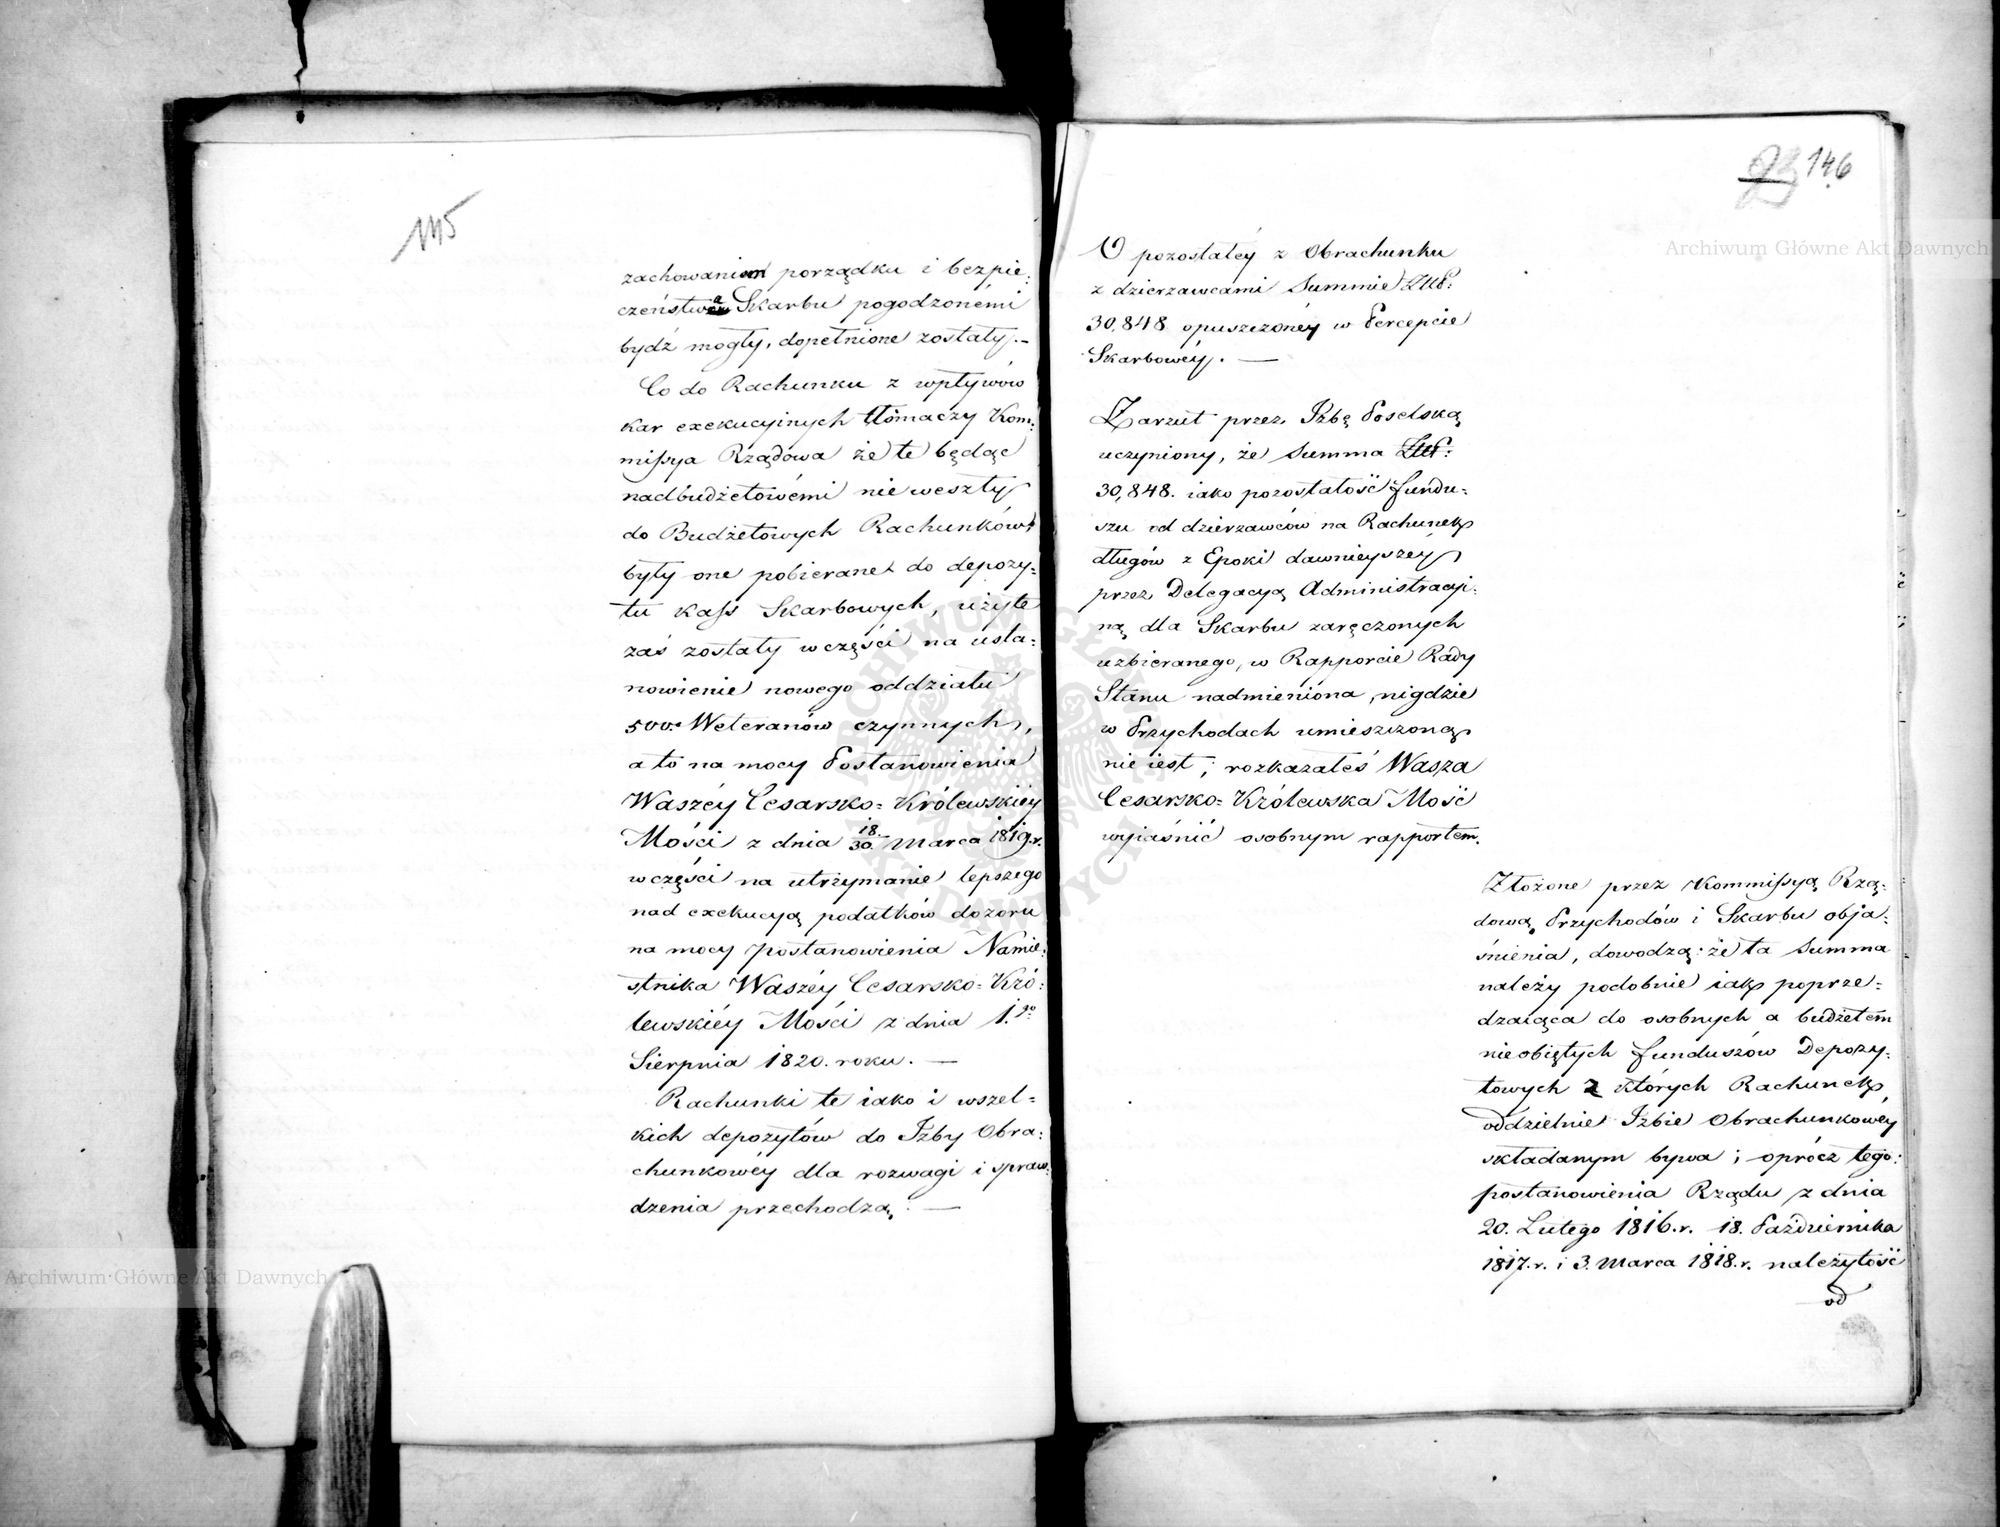 145
zachowaniem porządku i bezpie:
czeństwa Skarbu pogodzonémi
bydź mogły, dopełnione zostały. —
Co do Rachunku z wpływów
kar exekucyinych tłómaczy Kom:
missya Rządowa że te będąc
nadbudżetowémi nie weszły
do Budżetowych Rachunków
były one pobierane do depozy:
tu kass Skarbowych, użyte
zaś zostały w części na usta:
nowienie nowego oddziału
500. Weteranów czynnych,
a to na mocy Postanowienia
Waszéy Cesarsko: Królewskiéy
Mości z dnia 18./30. Marca 1819.r.
w części na utrzymanie lepszego
nad exekucyą podatków dozoru
na mocy postanowienia Namie:
stnika Waszéy Cesarsko: Kró:
lewskiéy Mości z dnia 1.go
Sierpnia 1820. roku. —
Rachunki te iako i wszel:
kich depozytów do Izby Obra:
chunkowéy dla rozwagi i spraw:
dzenia przechodzą. —
146
O pozostałéy z Obrachunku
z dzierzawcami Summie Złł.P:
30,848 opuszczonéy w Percepcie
Skarbowéy. —
Zarzut przez Izbę Poselską
uczyniony, że Summa Złł.P:
30,848. iako pozostałość fundu:
szu od dzierzawców na Rachunek
długów z Epoki dawnieyszéy
przez Delegacyą Administracyi:
ną dla Skarbu zaręczonych
uzbieranego, w Rapporcie Rady
Stanu nadmieniona, nigdzie
w Przychodach umieszczoną
nie iest; rozkazałeś Wasza
Cesarsko: Królewska Mość
wyiaśnić osobnym rapportem.
Złożone przez Kommissyą Rzą:
dową Przychodów i Skarbu obja:
śnienia, dowodzą: że ta Summa
należy podobnie iak poprze:
dzaiąca do osobnych a budżetem
nieobiętych funduszów Depozy:
towych z których Rachunek
oddzielnie Izbie Obrachunkowéy
składanym bywa; oprócz tego:
postanowienia Rządu z dnia
20. Lutego 1816.r. 18. Października
1817.r. i 3. Marca 1818.r. należytość
od
Archiwum Główne Akt Dawnych
Archiwum Główne Akt Dawnych
ARCHIWUM GŁÓWNE AKT DAWNYCH